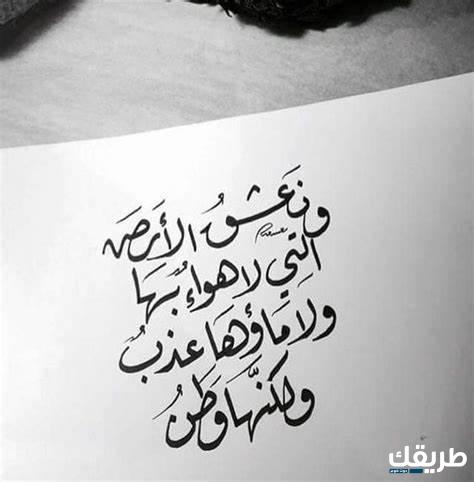 ونَعشقُ الأرضَ
التي لا هواءٌ بهَا
ولا مَاؤهَا عذبٌ
ولكنَّها وَطنُ
طريقك